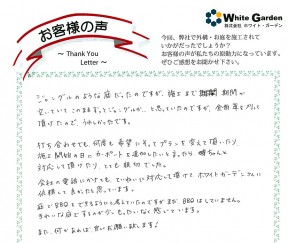 お客様の声
〜 Thank You
Letter 〜
White Garden
株式会社 ホワイト・ガーデン
今回、弊社で外構・お庭を施工されて
いかがだったでしょうか？
お客様の声が私たちの原動力になっています。
ぜひご感想をお聞かせ下さい。
ジャングルのような庭だったのですが、施工まで 期間が
空いていて このままずっとジャングルか、と思っていたのですが、全面草を刈って
頂けたので、うれしかったです。
打ち合わせでも、何度も希望にそってプランを変えて頂いたり、
施工開始の日にカーポートを追加したいと言ったら 晴ちゃんと
対応して頂けたり、とても親切でした。
会社の電話にかけても、ていねいに対応して頂けて、ホワイトガーデンさんに
依頼して良かったと思っています。
庭でBBQをできるようにと考えていたのですが まだ BBQはしていません。
きれいな庭ですしんが少しもったいなく感じています。
また、何かあれば、宜しくお願い致します！